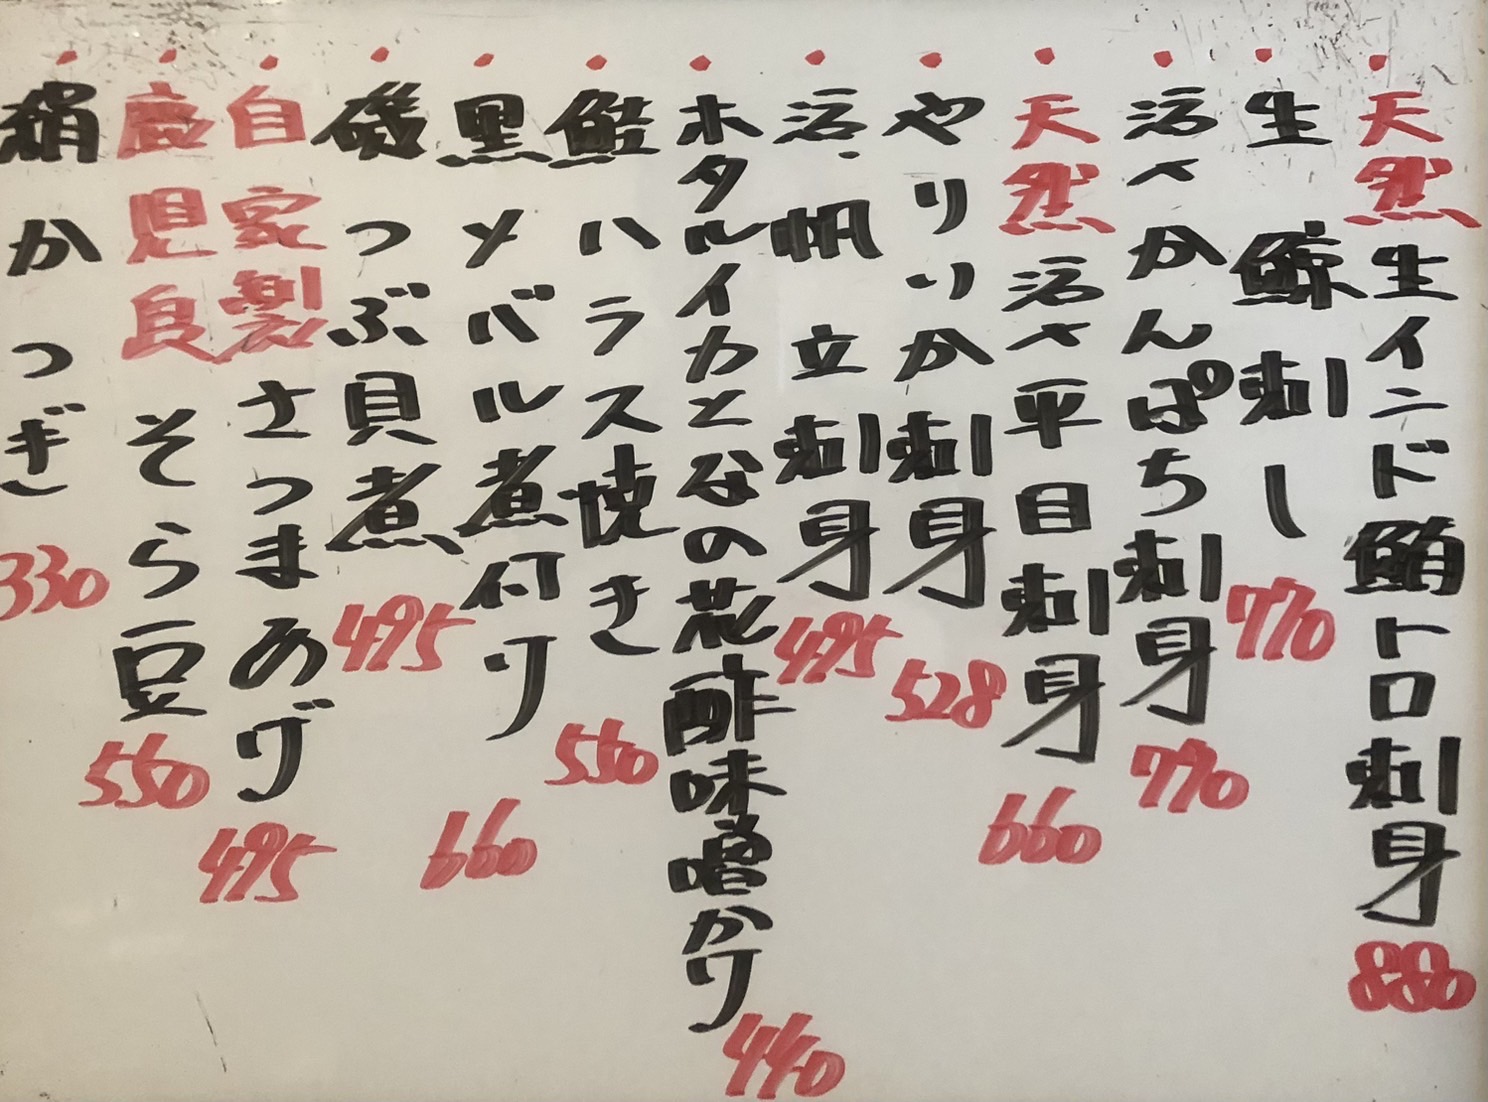 ・天然生インド鮪トロ刺身 880
・生鯨刺し 770
・活〆かんぱち刺身 770
・天然活〆平目刺身 660
・やりいか刺身 528
・活帆立刺身 495
・ホタルイカとなの花酢味噌かけ 440
・鮭ハラス焼き 550
・黒メバル煮付け 660
・磯つぶ貝煮 495
・自家製さつまあげ 495
・鹿児島そら豆 550
・絹かつぎ 330